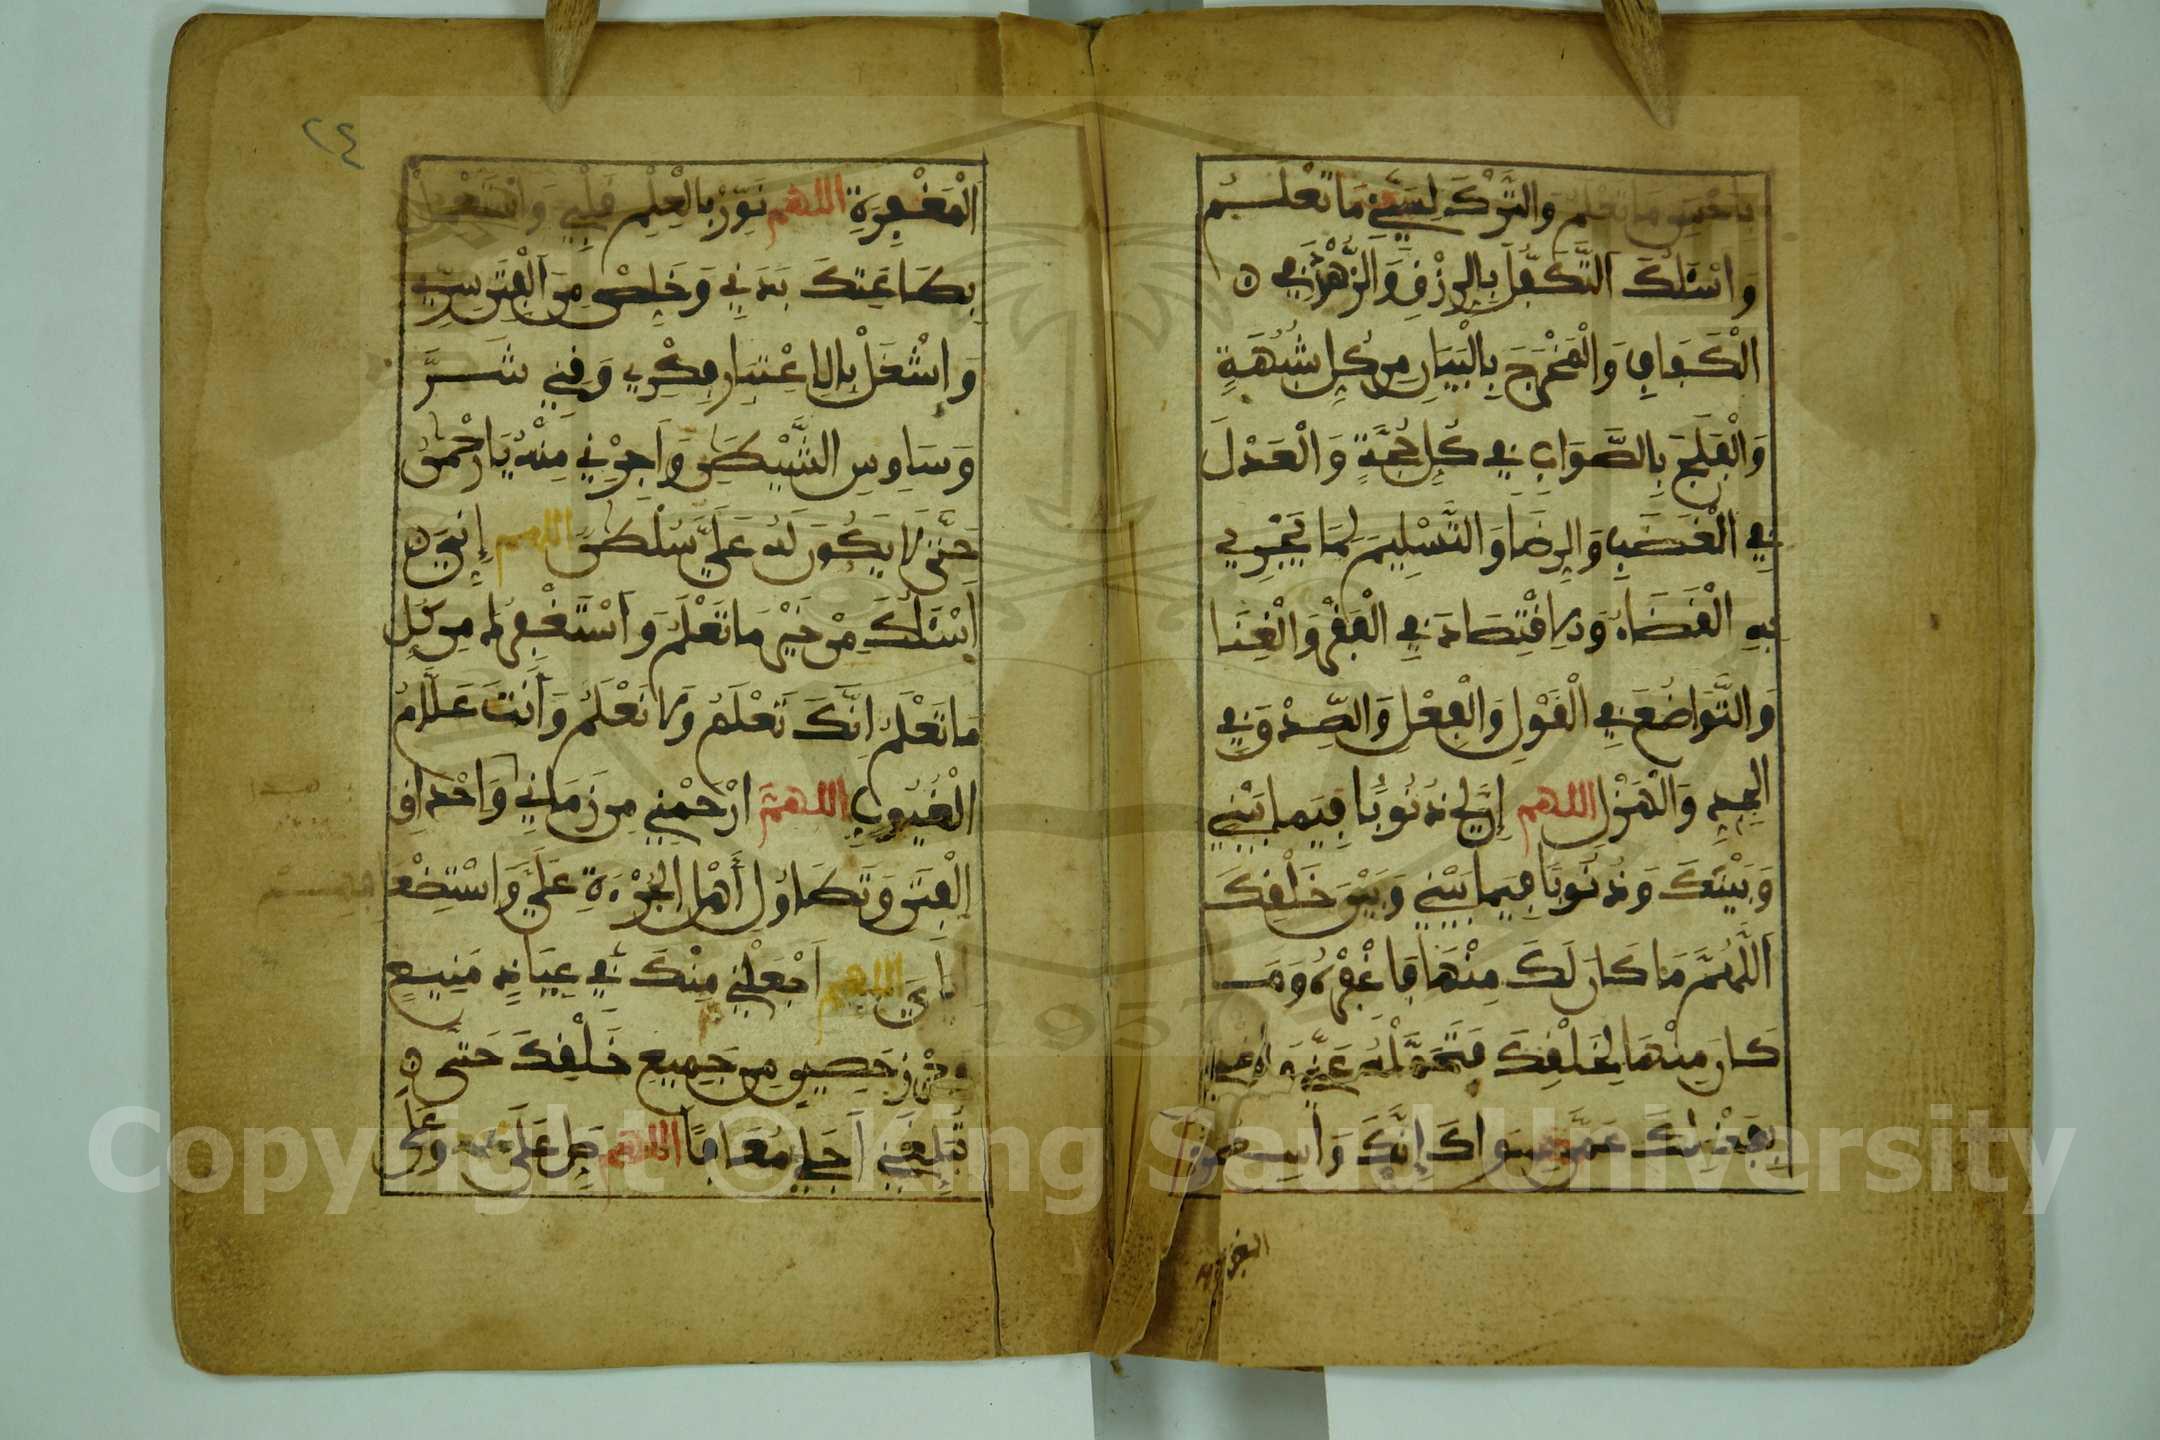 بِأَحْسَنِ مَا تَعْلَمُ وَالتَّرْكَ لِسَيِّئِ مَا تَعْلَمُ
وَأَسْئَلُكَ التَّكَفُّلَ بِالرِّزْقِ وَالزُّهْدَ فِي
الْكَفَافِ وَالْمَخْرَجَ بِالْبَيَانِ مِن كُلِّ شُبْهَةٍ
وَالْفَلَجَ بِالصَّوَابِ فِي كُلِّ حُجَّةٍ وَالْعَدْلَ
فِي الْغَضَبِ وَالرِّضَا وَالتَّسْلِيمَ لِمَا يَجْرِي
بِهِ الْقَضَاءُ وَالِاقْتِصَادَ فِي الْفَقْرِ وَالْغِنَا
وَالتَّوَاضُعَ فِي الْقَوْلِ وَالْفِعْلِ وَالصِّدْقَ فِي
الْجِدِّ وَالْهَزْلِ اللهم إِنَّ لِي ذُنُوبًا فِيمَا بَيْنِي
وَبَيْنَكَ وَذُنُوبًا فِيمَا بَيْنِي وَبَيْنَ خَلْقِكَ
اللَّهُمَّ مَا كَانَ لَكَ مِنْهَا فَاغْفِرْهُ وَمَا
كَانَ مِنْهَا لِخَلْقِكَ فَتَحَمَّلْهُ عَنِّي وَاغْنِنِي
بِفَضْلِكَ عَمَّن سِوَاكَ إِنَّكَ وَاسِعُ
المغفرة
٢٤
الْمَغْفِرَةِ اللهم نَوِّرْ بِالْعِلْمِ قَلْبِي وَاسْتَعْمِلْ
بِطَاعَتِكَ بَدَنِي وَخَلِّصْ مِنَ الْفِتَنِ سِرِّي
وَاشْغَلْ بِالِاعْتِبَارِ فِكْرِي وَقِنِي شَرَّ
وَسَاوِسِ الشَّيْطَنِ وَأَجِرْنِي مِنْهُ يَا رَحْمَنُ
حَتَّى لَا يَكُونَ لَهُ عَلَيَّ سُلْطَنٌ اللهم إِنِّي
أَسْئَلُكَ مِنْ خَيْرِ مَا تَعْلَمُ وَأَسْتَغْفِرُكَ مِن كُلِّ
مَا تَعْلَمُ إِنَّكَ تَعْلَمُ وَلَا نَعْلَمُ وَأَنتَ عَلَّامُ
الْغُيُوبِ اللهم ارْحَمْنِي مِن زَمَانِي وَإِحْدَاقِ
الْفِتَنِ وَتَطَاوُلِ أَهْلِ الْجُرْءَةِ عَلَيَّ وَاسْتِضْعَ
إِيَّايَ اللهم اجْعَلْنِي مِنْكَ فِي عِيَاذٍ مَنِيعٍ
وَحِرْزٍ حَصِينٍ مِن جَمِيعِ خَلْقِكَ حَتَّى
تُبَلِّغَنِي أَجَلِي مُعَافًا اللهم صَلِّ عَلَى محمد وَعَلَى
Copyright © King Saud University
1957